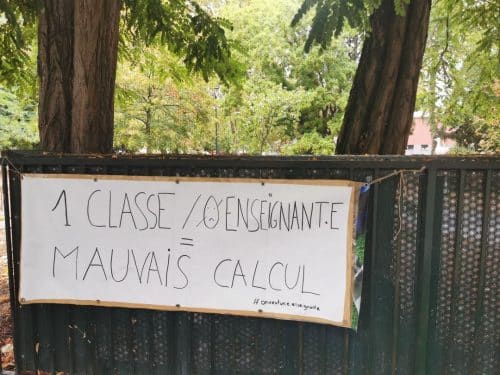 1 CLASSE / 0 ENSEIGNANT·E
=
MAUVAIS CALCUL